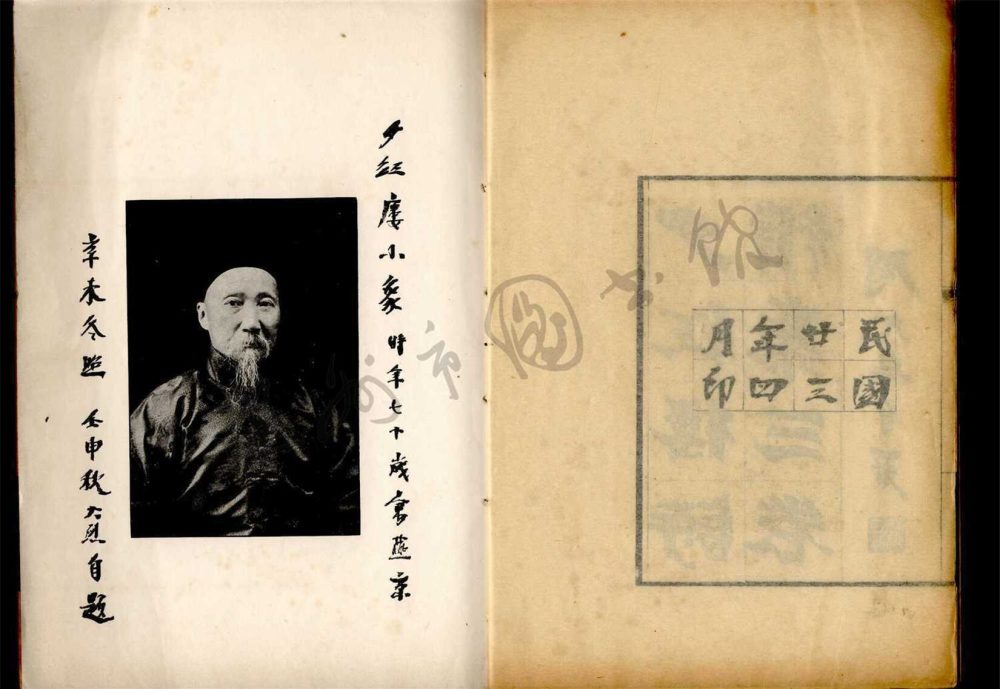 民國
廿三
年四
月印
夕紅廔小象 時年七十歲寓燕京
辛未冬照 壬申秋大烈自題
州市圖书館